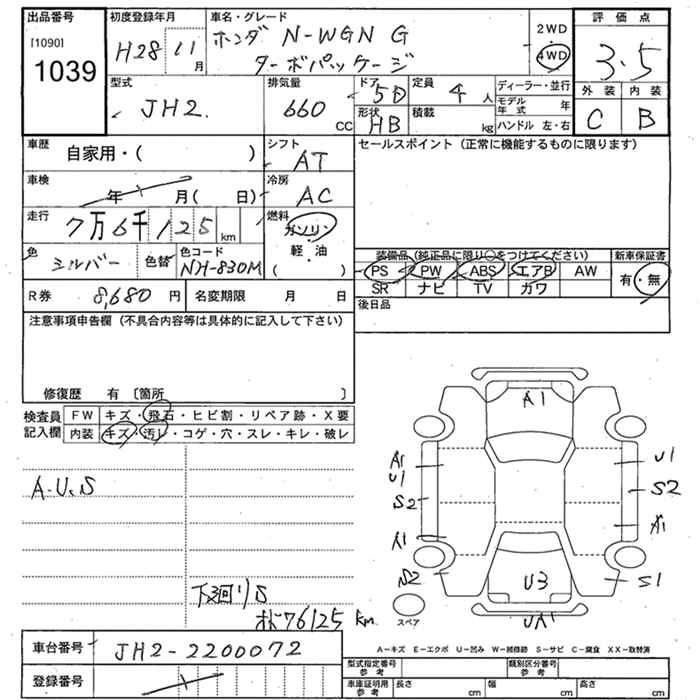 出品番号
[1090]
1039
初度登録年月
H28 11月
車名・グレード
ホンダ N-WGN G
ターボパッケージ
2WD
4WD
評価点
3.5
外装 内装
C B
型式
JH2
排気量
660 CC
ドア 5D
形状 HB
定員 4人
積載 kg
ディーラー・並行
モデル年式 年
ハンドル 左・右
車歴
自家用・( )
シフト
AT
セールスポイント (正常に機能するものに限ります)
車検
年 月( 日)
冷房
AC
走行
7万6千125km
燃料
ガソリン・
軽・油
( )
色
シルバー
色替
色コード
NH-830M
装備品 (純正品に限り○をつけてください)
新車保証書
PS PW ABS エアB AW
SR ナビ TV カワ
有・無
R券 8,680円
名変期限 月 日
後日品
注意事項申告欄 (不具合内容等は具体的に記入して下さい)
修復歴 有 〔箇所 〕
検査員
記入欄
FW キズ・飛石・ヒビ割・リペア跡・X要
内装 キズ・汚レ・コゲ・穴・スレ・キレ・破レ
A1
A1
U1
S2
A1
S2
U1
S2
A1
S1
U3
UA1
スペア
A.U.S
下廻りS
76125 km
A-キズ E-エクボ U-凹み W-補修跡 S-サビ C-腐食 XX-取替済
車台番号
JH2-2200072
登録番号
型式指定番号
参考
類別区分番号
参考
車庫証明用
参考
長さ cm 幅 cm 高さ cm